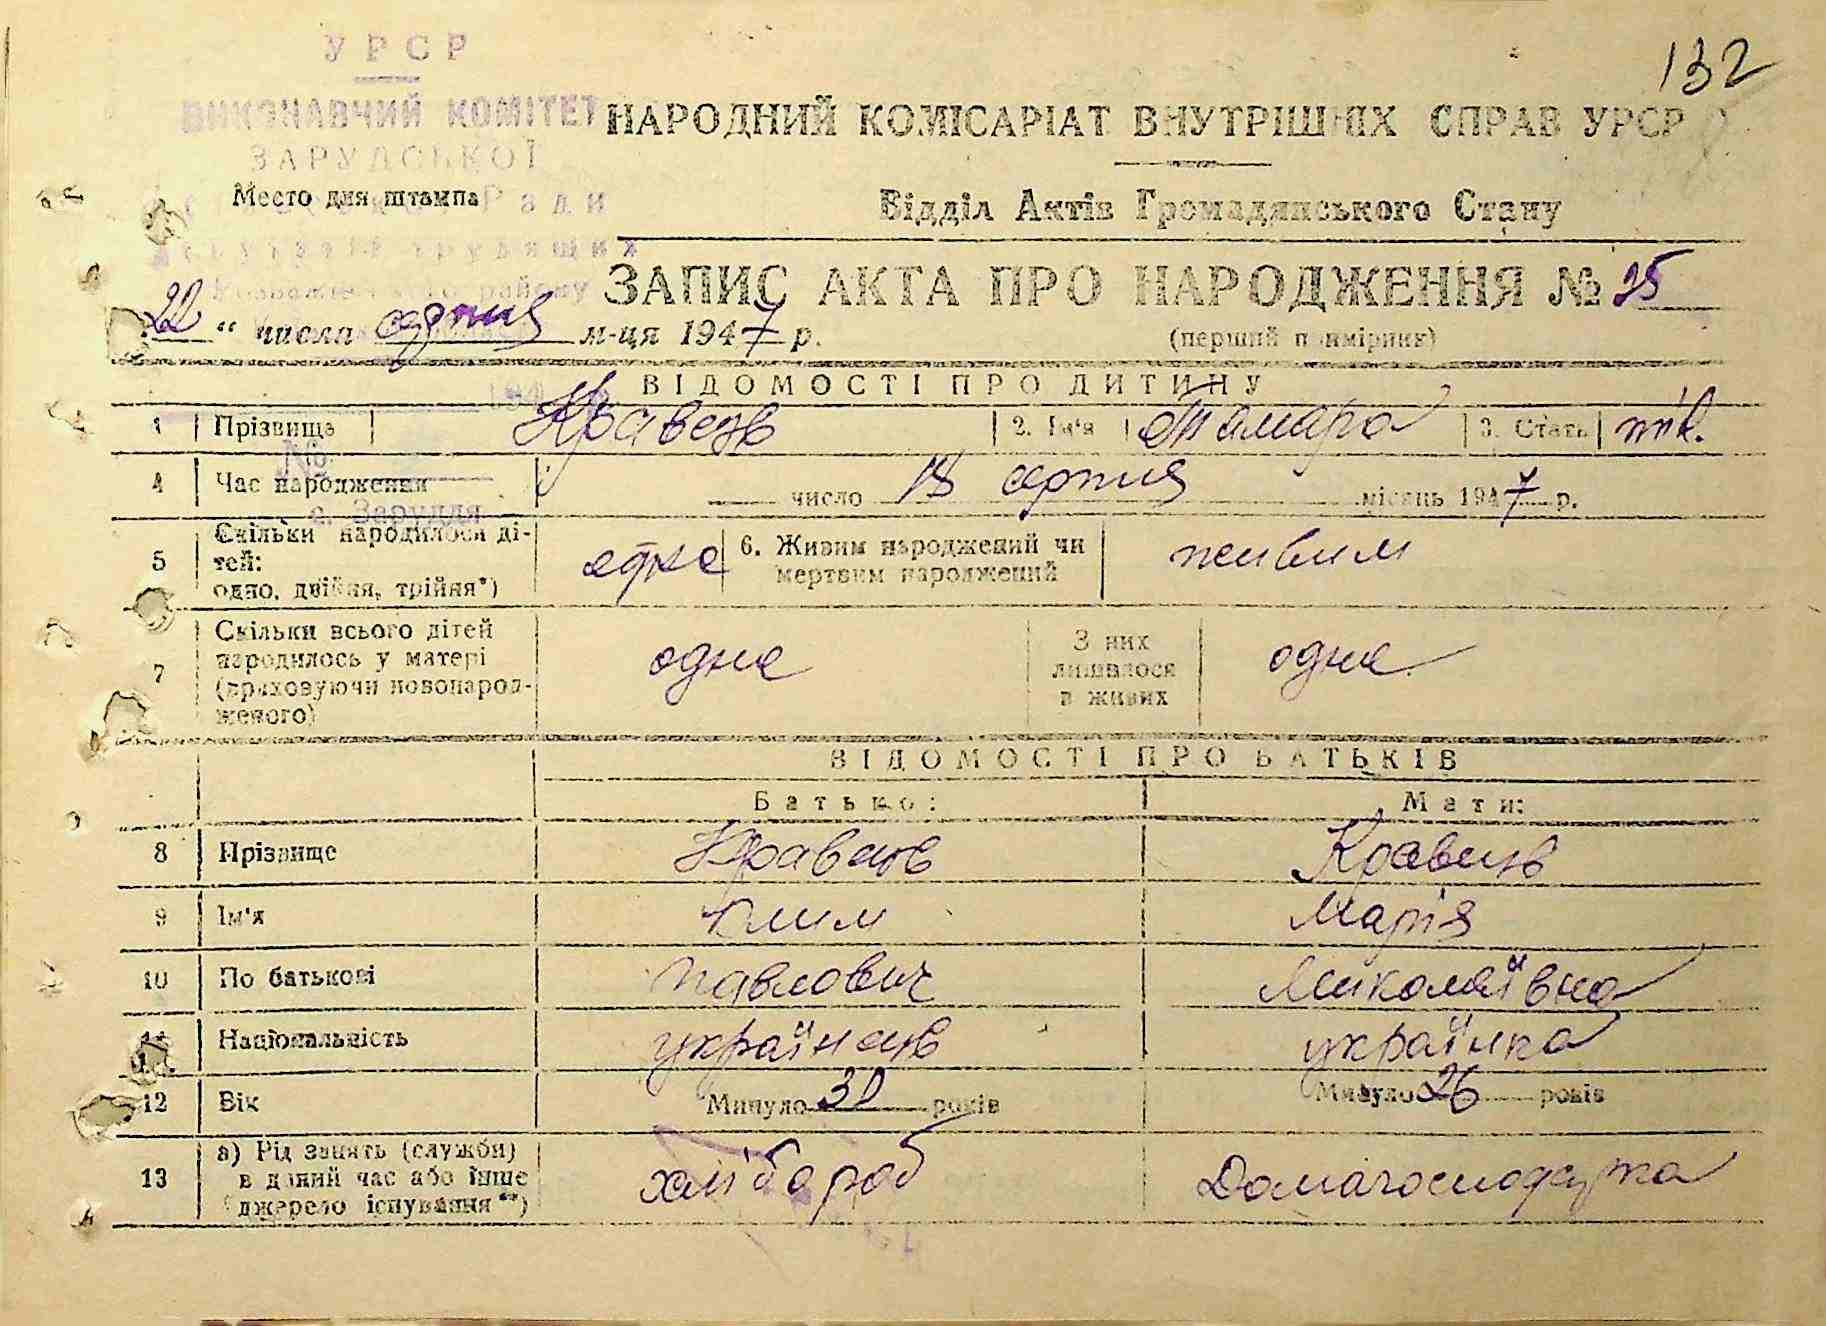 132
УРСР
ВИКОНАВЧИЙ КОМІТЕТ
ЗАРУДСЬКОЇ
Ради
трудящих
району
с. Заруддя
№
194
НАРОДНИЙ КОМІСАРІАТ ВНУТРІШНІХ СПРАВ УРСР
Место для штампа
Відділ Актів Громадянського Стану
ЗАПИС АКТА ПРО НАРОДЖЕННЯ № 25
22 “ числа серпня м-ця 1947 р.
(перший примірник)
ВІДОМОСТІ ПРО ДИТИНУ
1 Прізвище Кравець 2. Ім'я Тамара 3. Стать
4 Час народження число 18 серпня місяць 1947 р.
5 Скільки народилося ді-
тей:
одно, двійня, трійня*) одне
6. Живим народжений чи
мертвим народжений живим
7 Скільки всього дітей
народилось у матері
(враховуючи новонарод-
женого) одне
З них
лишилося
в живих одне
ВІДОМОСТІ ПРО БАТЬКІВ
Батько: Мати:
8 Прізвище Кравець Кравець
9 Ім'я Клим Марія
10 По батькові Павлович Миколаївна
11 Національність українець українка
12 Вік Минуло 30 років Минуло 26 років
13 а) Рід занять (служби)
в даний час або інше
джерело існування**) хлібороб Домагосподарка